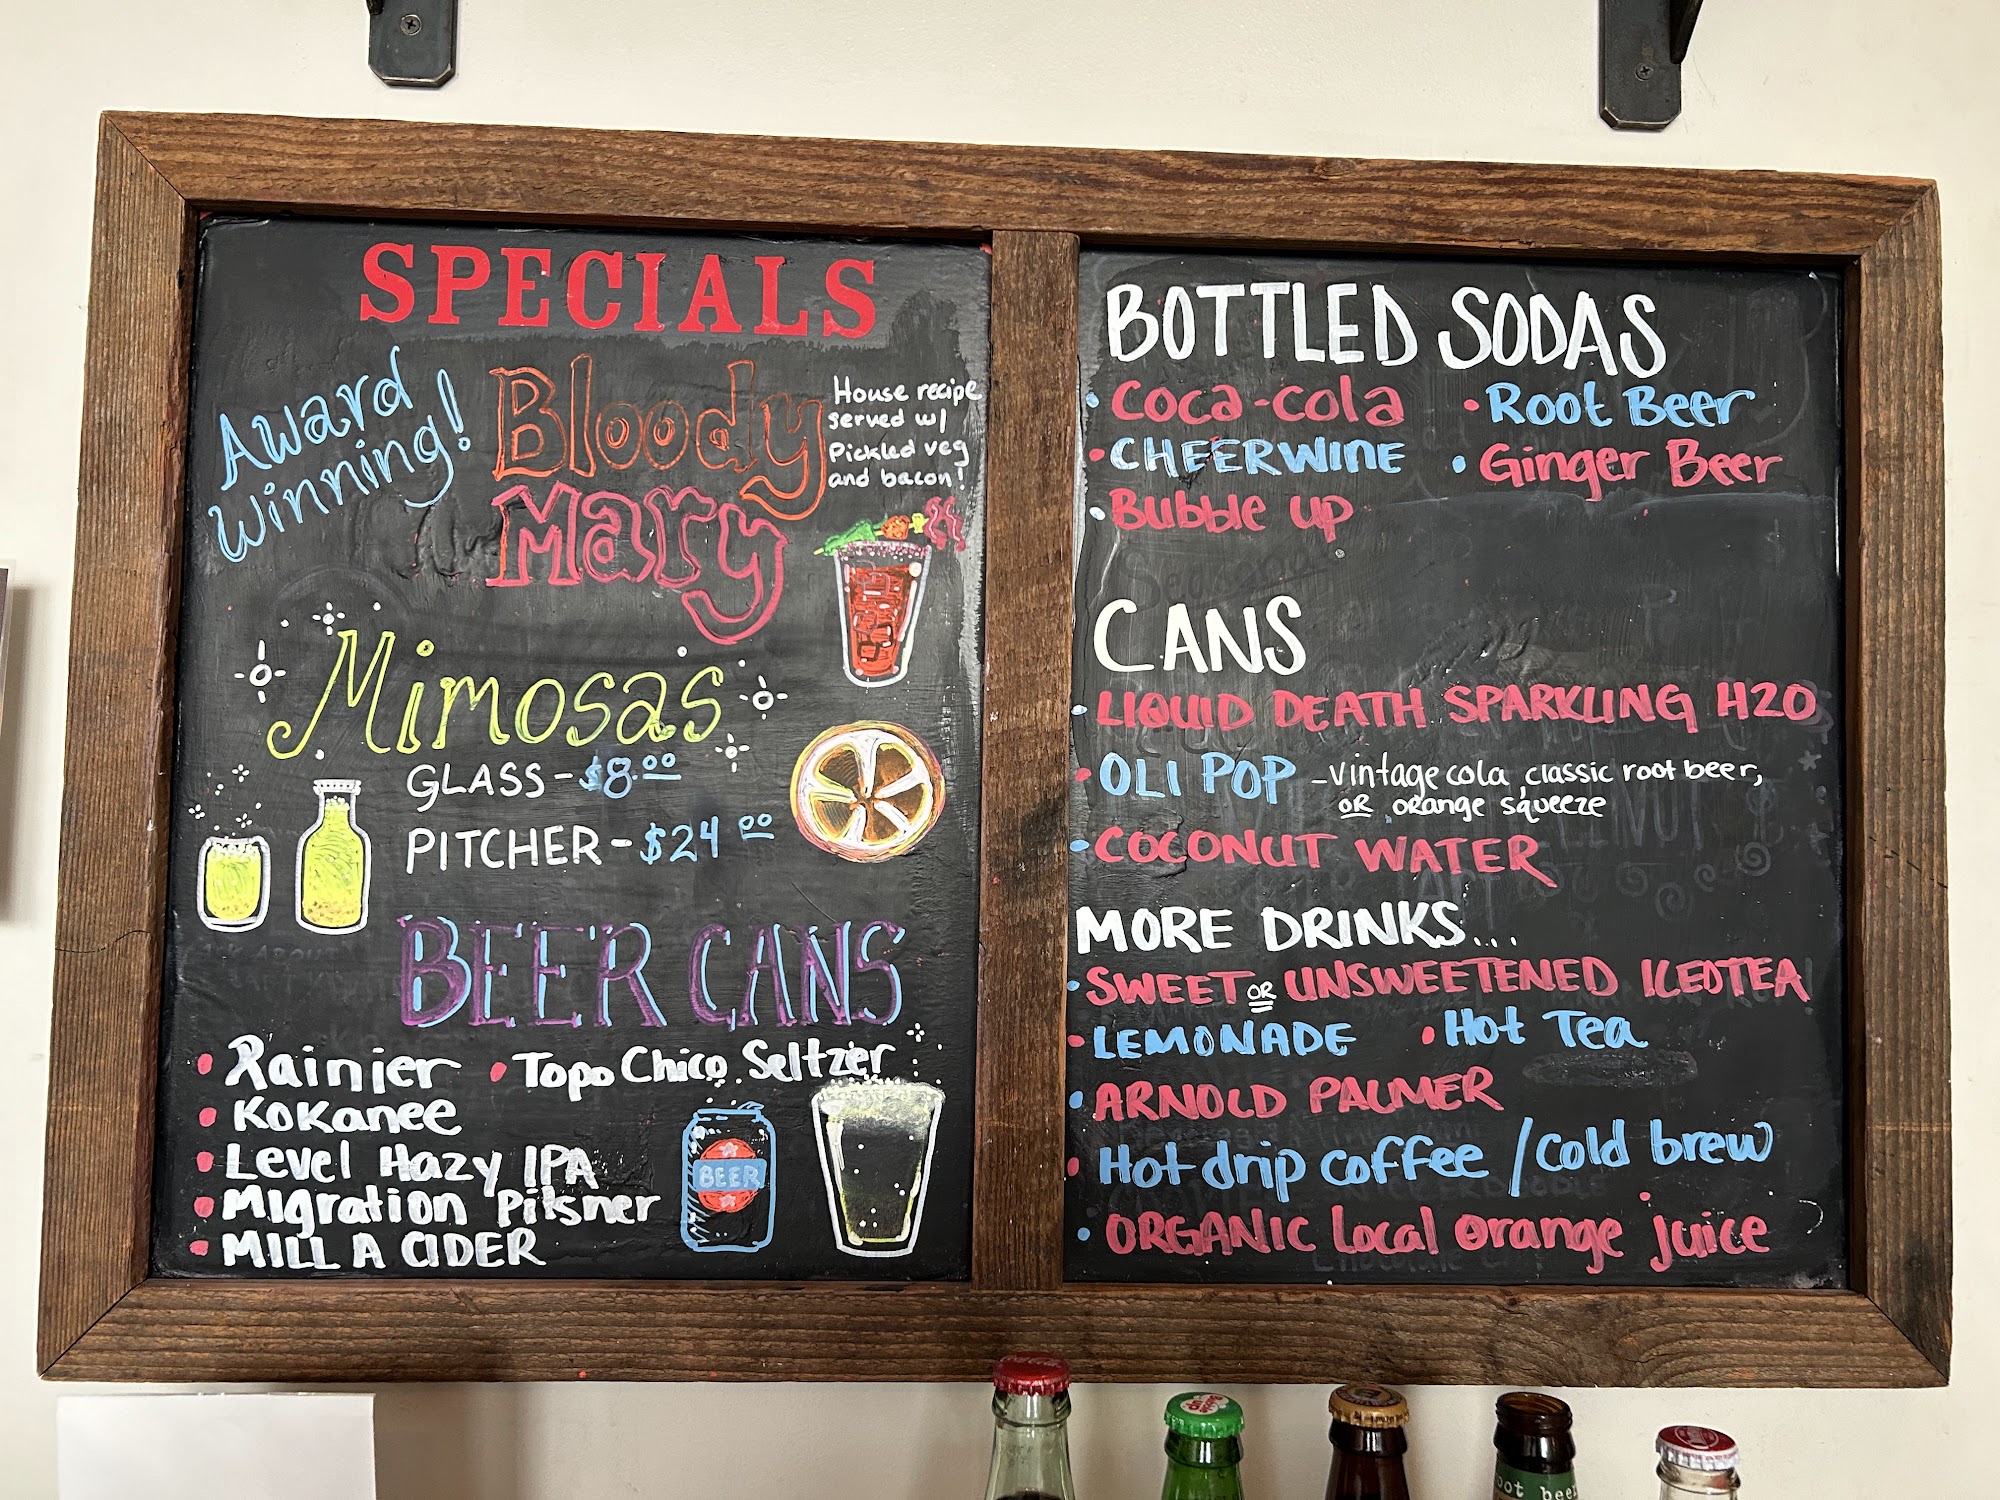 SPECIALS
Award
Winning!
Bloody
Mary
House recipe
served w/
Pickled veg
and bacon!
Mimosas
GLASS - $8.00
PITCHER - $24.00
BEER CANS
• Rainier • Topo Chico Seltzer
• Kokanee
• Level Hazy IPA
• Migration Pilsner
• MILL A CIDER
BEER
BOTTLED SODAS
• Coca-cola • Root Beer
• CHEERWINE • Ginger Beer
• Bubble up
CANS
• LIQUID DEATH SPARKLING H2O
• OLI POP - vintage cola, classic root beer,
OR orange squeeze
• COCONUT WATER
MORE DRINKS...
• SWEET OR UNSWEETENED ICEDTEA
• LEMONADE • Hot Tea
• ARNOLD PALMER
• Hot drip coffee / cold brew
• ORGANIC local orange juice